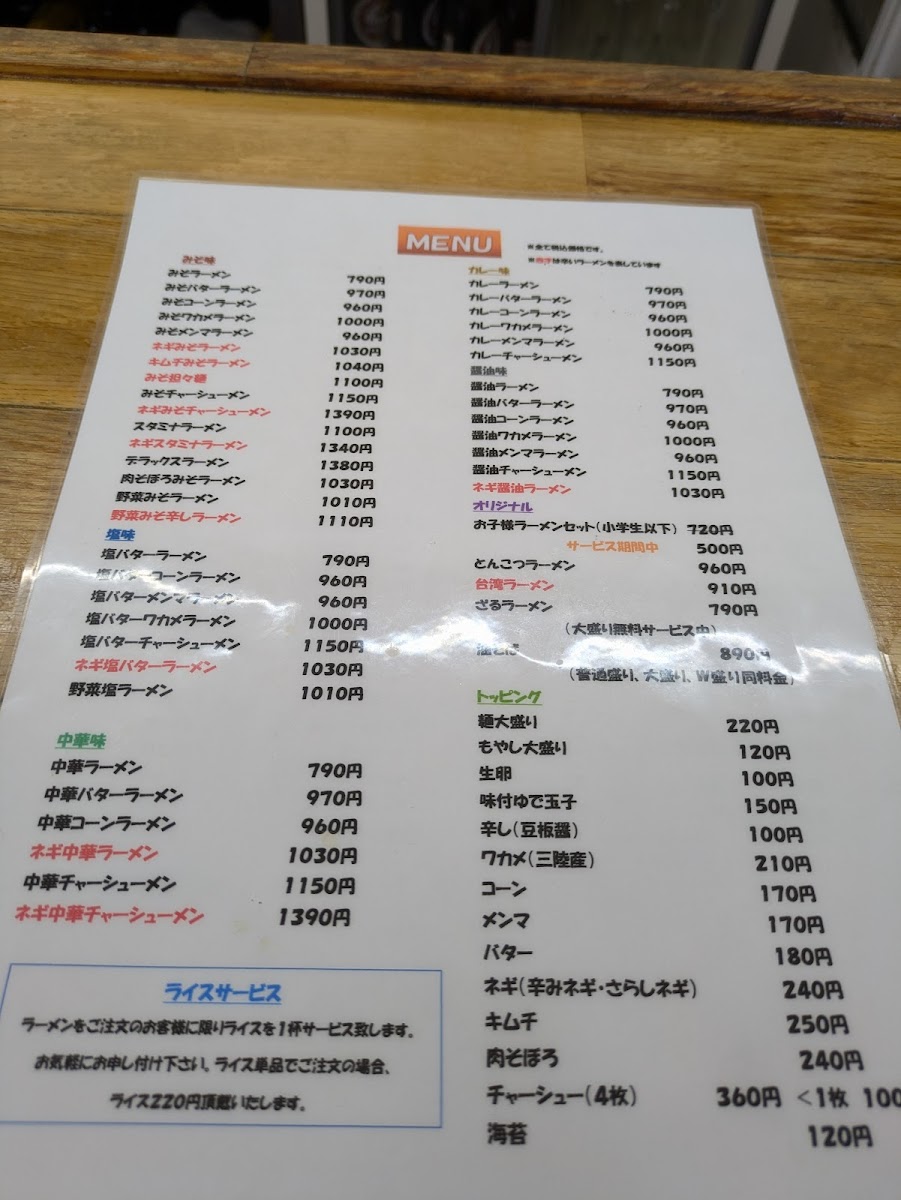 MENU
※全て税込価格です。
※赤字は辛いラーメンを表しています
みそ味
みそラーメン 790円
みそバターラーメン 970円
みそコーンラーメン 960円
みそワカメラーメン 1000円
みそメンマラーメン 960円
ネギみそラーメン 1030円
キムチみそラーメン 1040円
みそ担々麺 1100円
みそチャーシューメン 1150円
ネギみそチャーシューメン 1390円
スタミナラーメン 1100円
ネギスタミナラーメン 1340円
デラックスラーメン 1380円
肉そぼろみそラーメン 1030円
野菜みそラーメン 1010円
野菜みそ辛しラーメン 1110円
塩味
塩バターラーメン 790円
塩バターコーンラーメン 960円
塩バターメンマラーメン 960円
塩バターワカメラーメン 1000円
塩バターチャーシューメン 1150円
ネギ塩バターラーメン 1030円
野菜塩ラーメン 1010円
中華味
中華ラーメン 790円
中華バターラーメン 970円
中華コーンラーメン 960円
ネギ中華ラーメン 1030円
中華チャーシューメン 1150円
ネギ中華チャーシューメン 1390円
ライスサービス
ラーメンをご注文のお客様に限りライスを1杯サービス致します。
お気軽にお申し付け下さい。ライス単品でご注文の場合、
ライス220円頂戴いたします。
カレー味
カレーラーメン 790円
カレーバターラーメン 970円
カレーコーンラーメン 960円
カレーワカメラーメン 1000円
カレーメンマラーメン 960円
カレーチャーシューメン 1150円
醤油味
醤油ラーメン 790円
醤油バターラーメン 970円
醤油コーンラーメン 960円
醤油ワカメラーメン 1000円
醤油メンマラーメン 960円
醤油チャーシューメン 1150円
ネギ醤油ラーメン 1030円
オリジナル
お子様ラーメンセット(小学生以下) 720円
サービス期間中 500円
とんこつラーメン 960円
台湾ラーメン 910円
ざるラーメン 790円
(大盛り無料サービス中)
油そば 890円
(普通盛り、大盛り、W盛り同料金)
トッピング
麺大盛り 220円
もやし大盛り 120円
生卵 100円
味付ゆで玉子 150円
辛し(豆板醤) 100円
ワカメ(三陸産) 210円
コーン 170円
メンマ 170円
バター 180円
ネギ(辛みネギ・さらしネギ) 240円
キムチ 250円
肉そぼろ 240円
チャーシュー(4枚) 360円 <1枚 100
海苔 120円